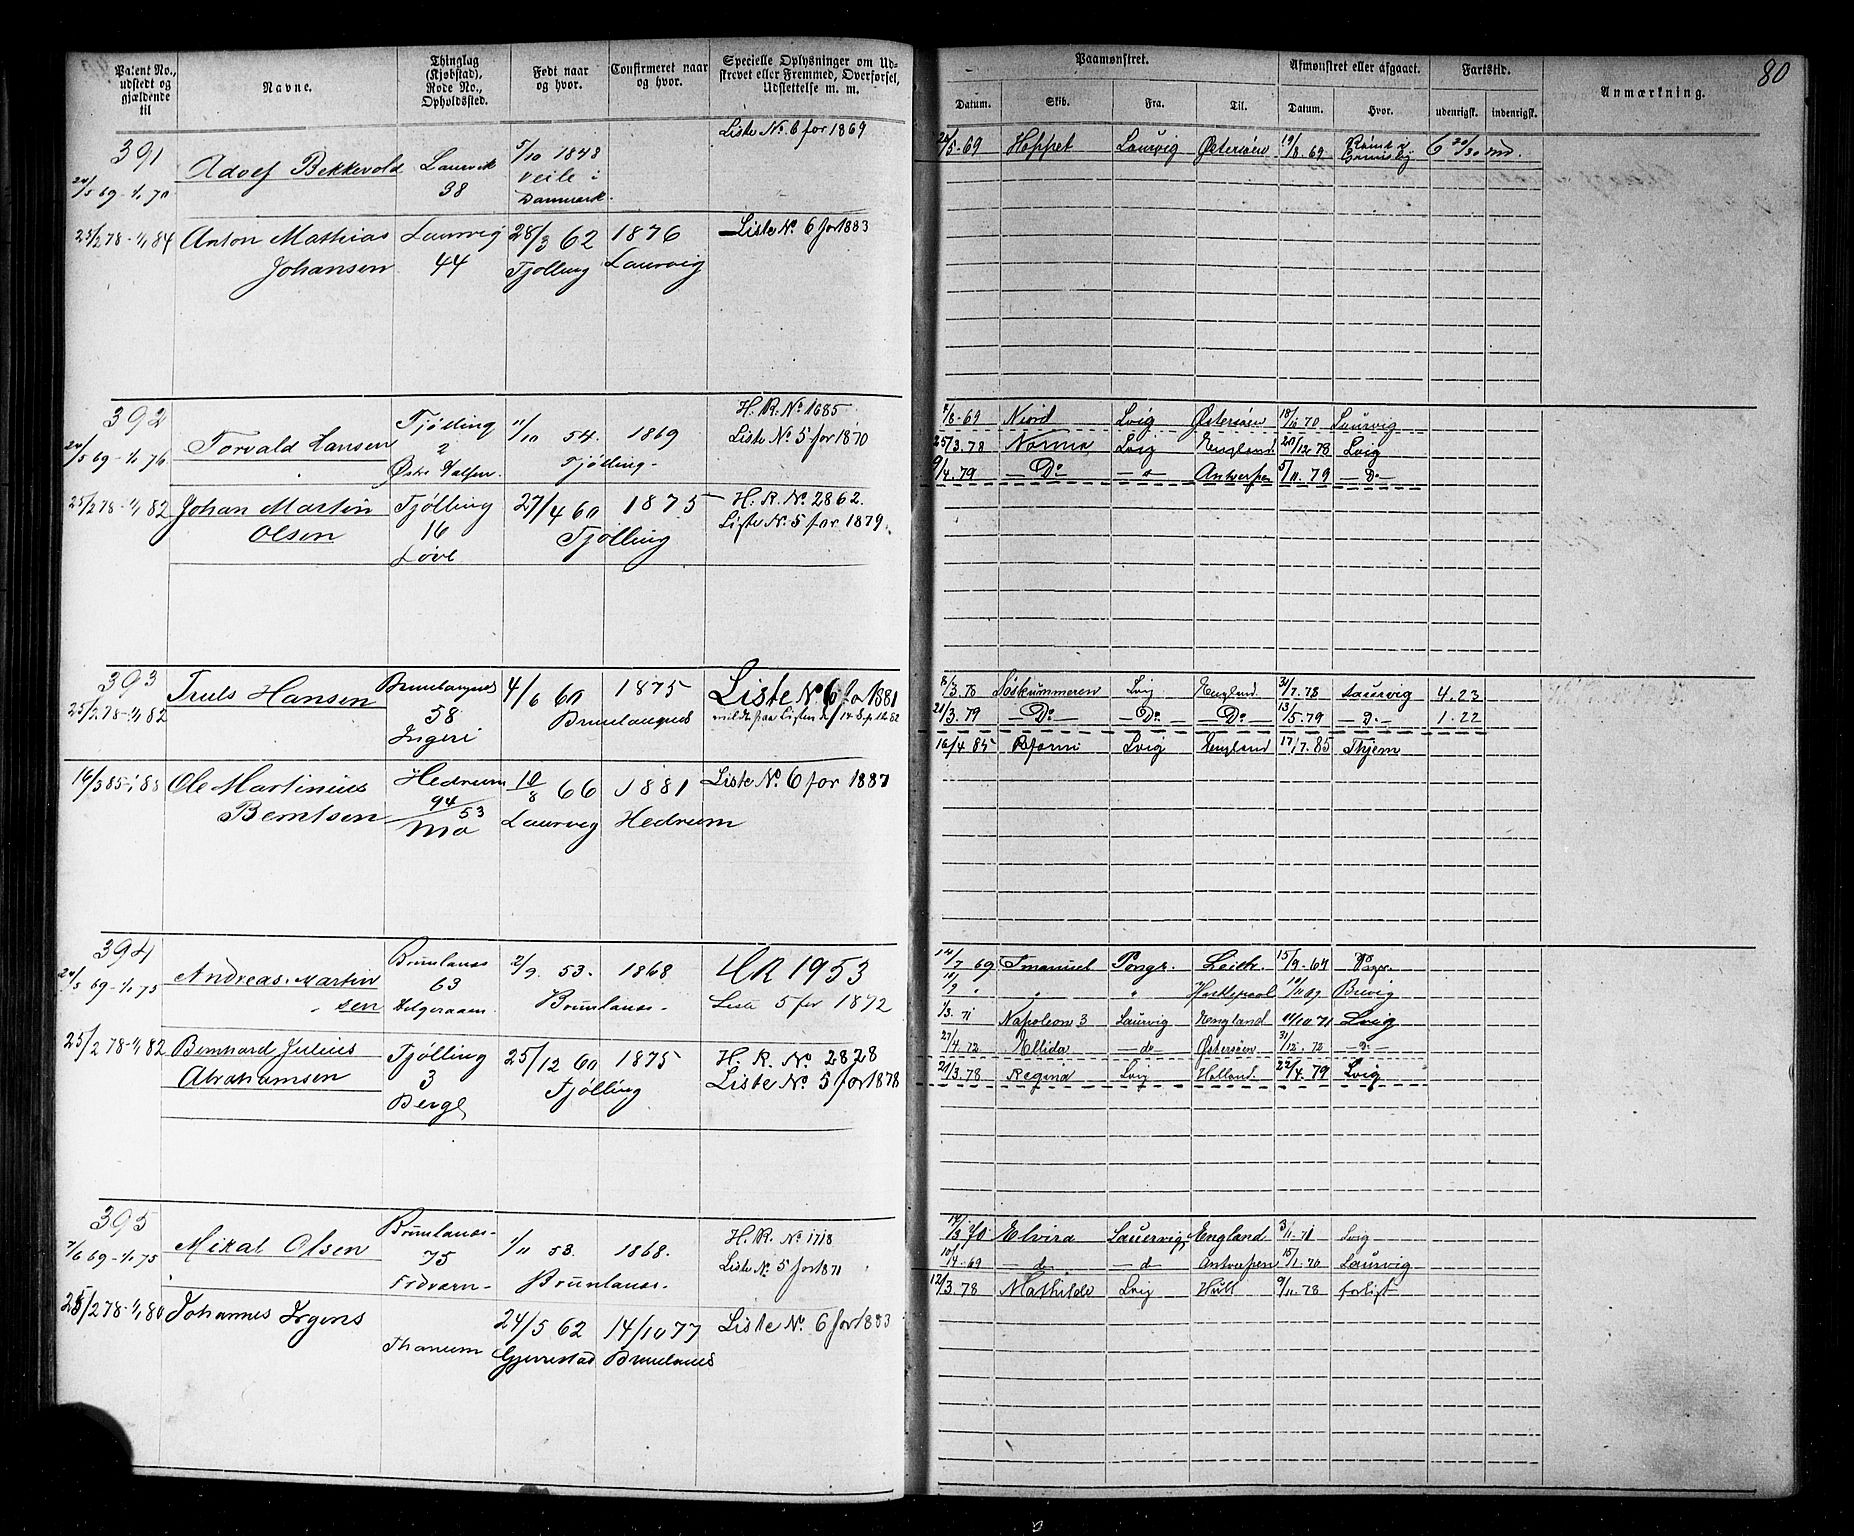 Patent No., udstedt og gjældende til
Navne.
Thinglag (Kjøbstad), Rode No., Opholdssted.
Født naar og hvor.
Confirmeret naar og hvor.
Specielle Oplysninger om Udskrevet eller Fremmed, Overførsel, Udslettelse m. m.
Paamønstret.
Datum. Skib. Fra. Til.
Afmønstret eller afgaaet.
Datum. Hvor.
Fartstid.
udenrigsk. indenrigsk.
Anmærkning.
80
391
Liste No. 6 for 1869
Adolf Bekkevold Laurvik 5/10 1848
24/5 69 - 1/1 70 38 Veile i
Danmark.
24/5-69 Hoppet Laurvig Østersøen 19/8.69 Grimsby 6 20/30 md.
25/2 78 - 1/1 84 Anton Mathias Laurvig 28/3 62 1876 Liste No. 6 for 1883
Johansen 44 Tjølling Laurvig
392
H. R. No. 1685
Torvald Hansen Tjølling 11/10 54. 1869 Liste No. 5 for 1870
24/5 69 - 1/1 76 2 Tjølling
Østre
4/8-69 Niord Lvig Østersøen 18/11 70 Laurvig
25/3.78 Norma Lvig England 20/12.78 Lvig
9/4.79 - Do - - d - Antwerpen 5/11.79 - D -
25/2 78 - 1/1 82 Johan Martin Tjølling 27/4 60 1875 H. R. No. 2862.
Olsen 16 Tjølling Liste No. 5 for 1879.
Løve
393
Truls Hansen Brunlangnes 4/6 60 1875 Liste No. 6 for 1881
25/2 78 - 1/1 82 58 Brunlangnes
8/3.78 Søskummeren Lvig England 31/7.78 Laurvig 4.23
21/3.79 - Do - - Do - - Do - 13/5.79 - D - 1.22
16/4 85 Lvig England 17/7.85
16/3 85 - 88 Ole Martinius Hedrum 10/8 66 1881 Liste No. 6 for 1887
Berntsen 94/53 Laurvig Hedrum
Mo
394
Andreas Martin Brunlanes 2/9. 53. 1868 HR 1953
24/5 69 - 1/1 75 sen 63 Brunlanes. Liste 5 for 1872
Helgeraaen.
14/7 69 Imanuel Leith. 15/9.69
Hartlepool Brevig
1/3. 71 Napoleon 3 Laurvig England 14/10 71 Lvig
27/4.72 Ellida - do Østersøen 31/12.72 - d -
21/3.78 Regina Lvig Holland. 22/4.79 Lvig
25/2 78 - 1/1 82 Bernhard Julius Tjølling 25/12 60 1875 H. R. No. 2828
Abrahamsen 3 Tjølling Liste No. 5 for 1878
Berge
395
Mikal Olsen Brunlanes- 1/11 53. 1868. H. R. No 1718
7/6 69 - 1/1 75 75 Brunlanes. Liste No. 5 for 1871
Fredværn
14/3 70 Elvira Laurvig England 3/11.71 Lvig
10/4.69 - d - - d Antwerpen 15/1.70 Laurvig
12/3.78 Mathilde Lvig Hull 9/11.78 forlist
25/2 78 - 1/1 80 Johannes Irgens 24/5 62 14/10 77 Liste No. 6 for 1883
Thanum Gjerrestad Brunlanes